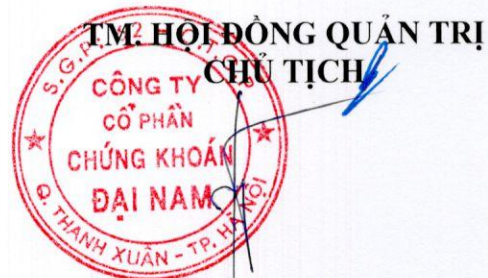 TM. HỘI ĐỒNG QUẢN TRỊ
CHỦ TỊCH
CÔNG TY
CỔ PHẦN
CHỨNG KHOÁN
ĐẠI NAM
Q. THANH XUÂN - TP. HÀ NỘI